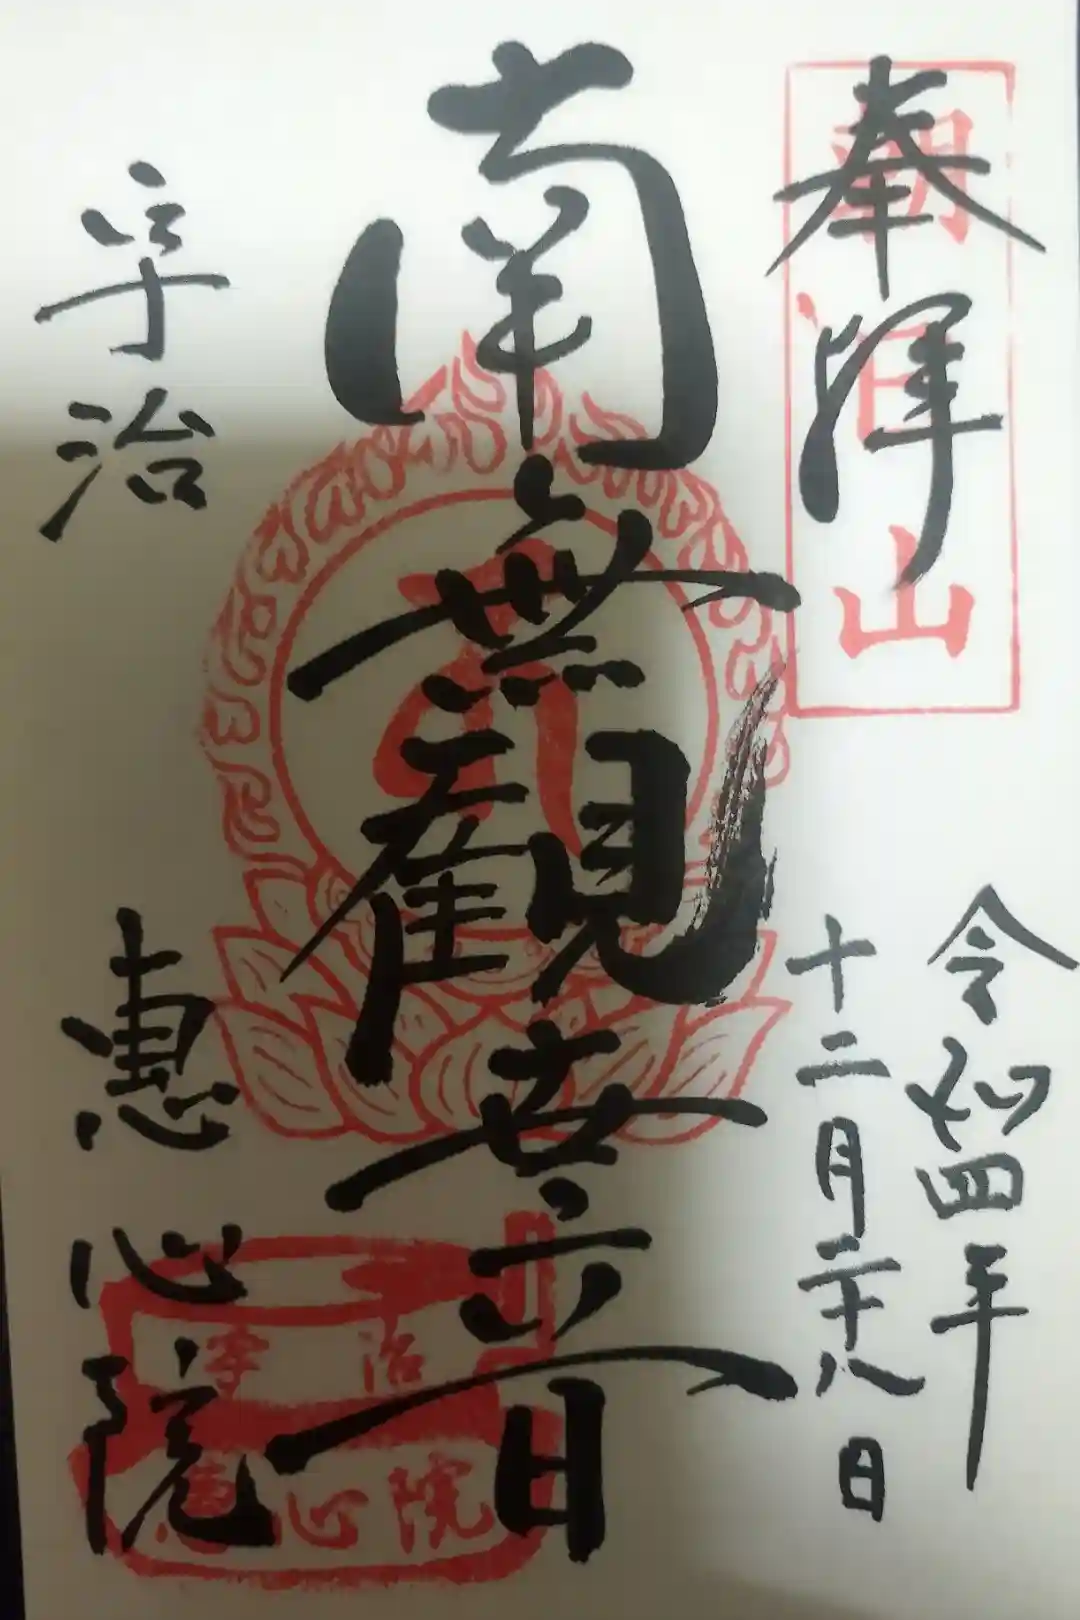 奉拝
朝日山
令和四年
十二月二十八日
南無観世音
宇治
惠心院
宇治
恵心院